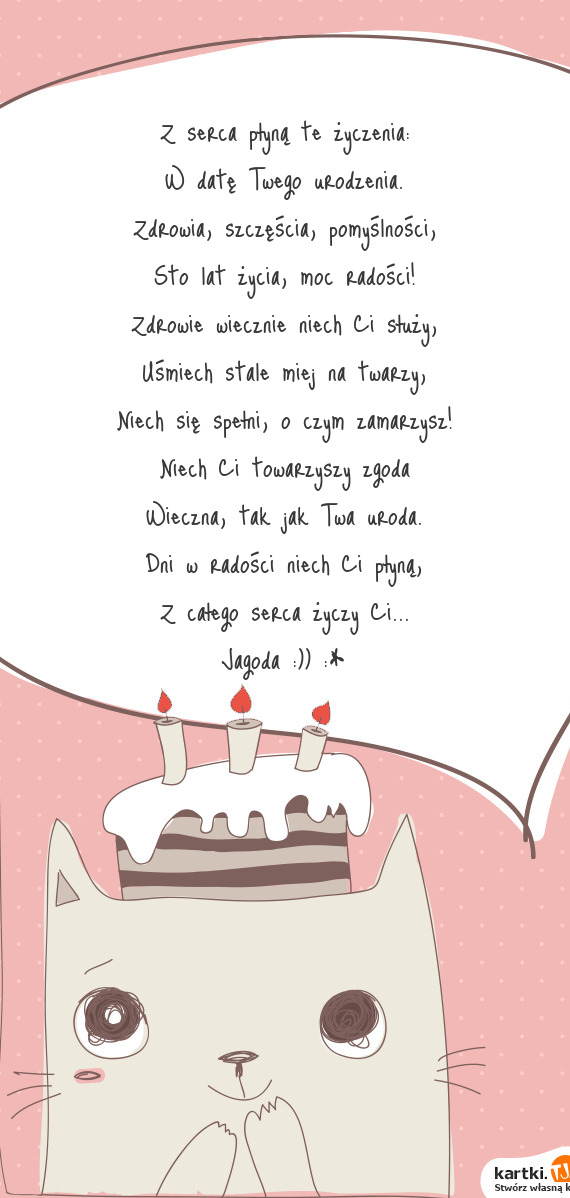 Z serca płyną te życzenia:
W datę Twego urodzenia.
Zdrowia, szczęścia, pomyślności,
Sto lat życia, moc radości!
Zdrowie wiecznie niech Ci służy,
Uśmiech stale miej na twarzy,
Niech się spełni, o czym zamarzysz!
Niech Ci towarzyszy zgoda
Wieczna, tak jak Twa uroda.
Dni w radości niech Ci płyną,
Z całego serca życzy Ci...
Jagoda :)) :*
kartki.TJ
Stwórz własną k